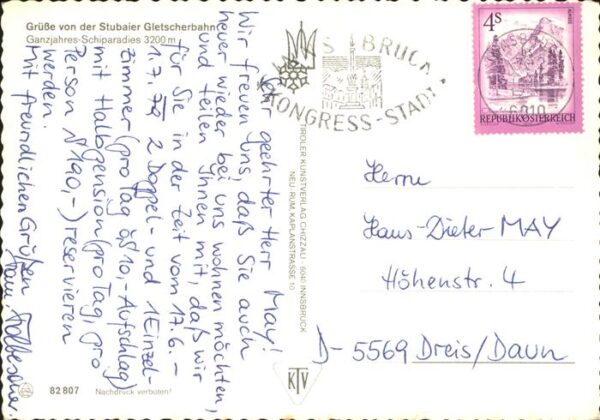 Grüße von der Stubaier Gletscherbahn
Ganzjahres-Schiparadies 3200 m
Sehr geehrter Herr May!
Wir freuen uns, daß Sie auch
heuer wieder bei uns wohnen möchten,
und teilen Ihnen mit, daß wir
für Sie in der Zeit vom 17.6.-
1.7.78 2 Doppel- und 1 Einzel-
zimmer (pro Tag öS 10,- Aufschlag)
mit Halbpension (pro Tag, pro
Person S 190,-) reservieren
werden.
Mit freundlichen Grüßen
82807
Nachdruck verboten!
TIROLER KUNSTVERLAG CHIZZALI · 6040 INNSBRUCK
NEU-RUM, KAPLANSTRASSE 10
KTV
INNSBRUCK
KONGRESS-STADT
6010
4S
REPUBLIK ÖSTERREICH
Herrn
Hans-Dieter MAY
Höhenstr. 4
D-5569 Dreis/Daun